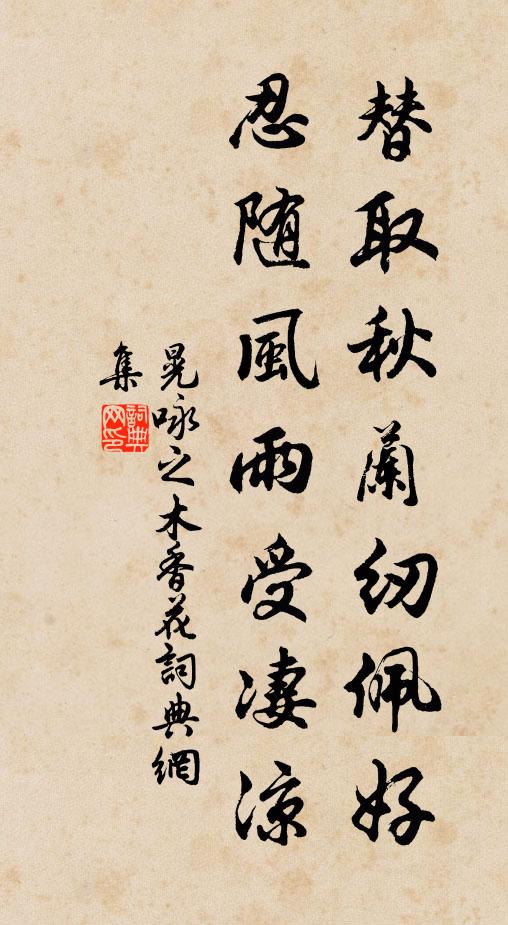 替取秋蘭紉佩好
忍随風雨受凄涼
晃咏之木香花詞典網
集
詞典
网印